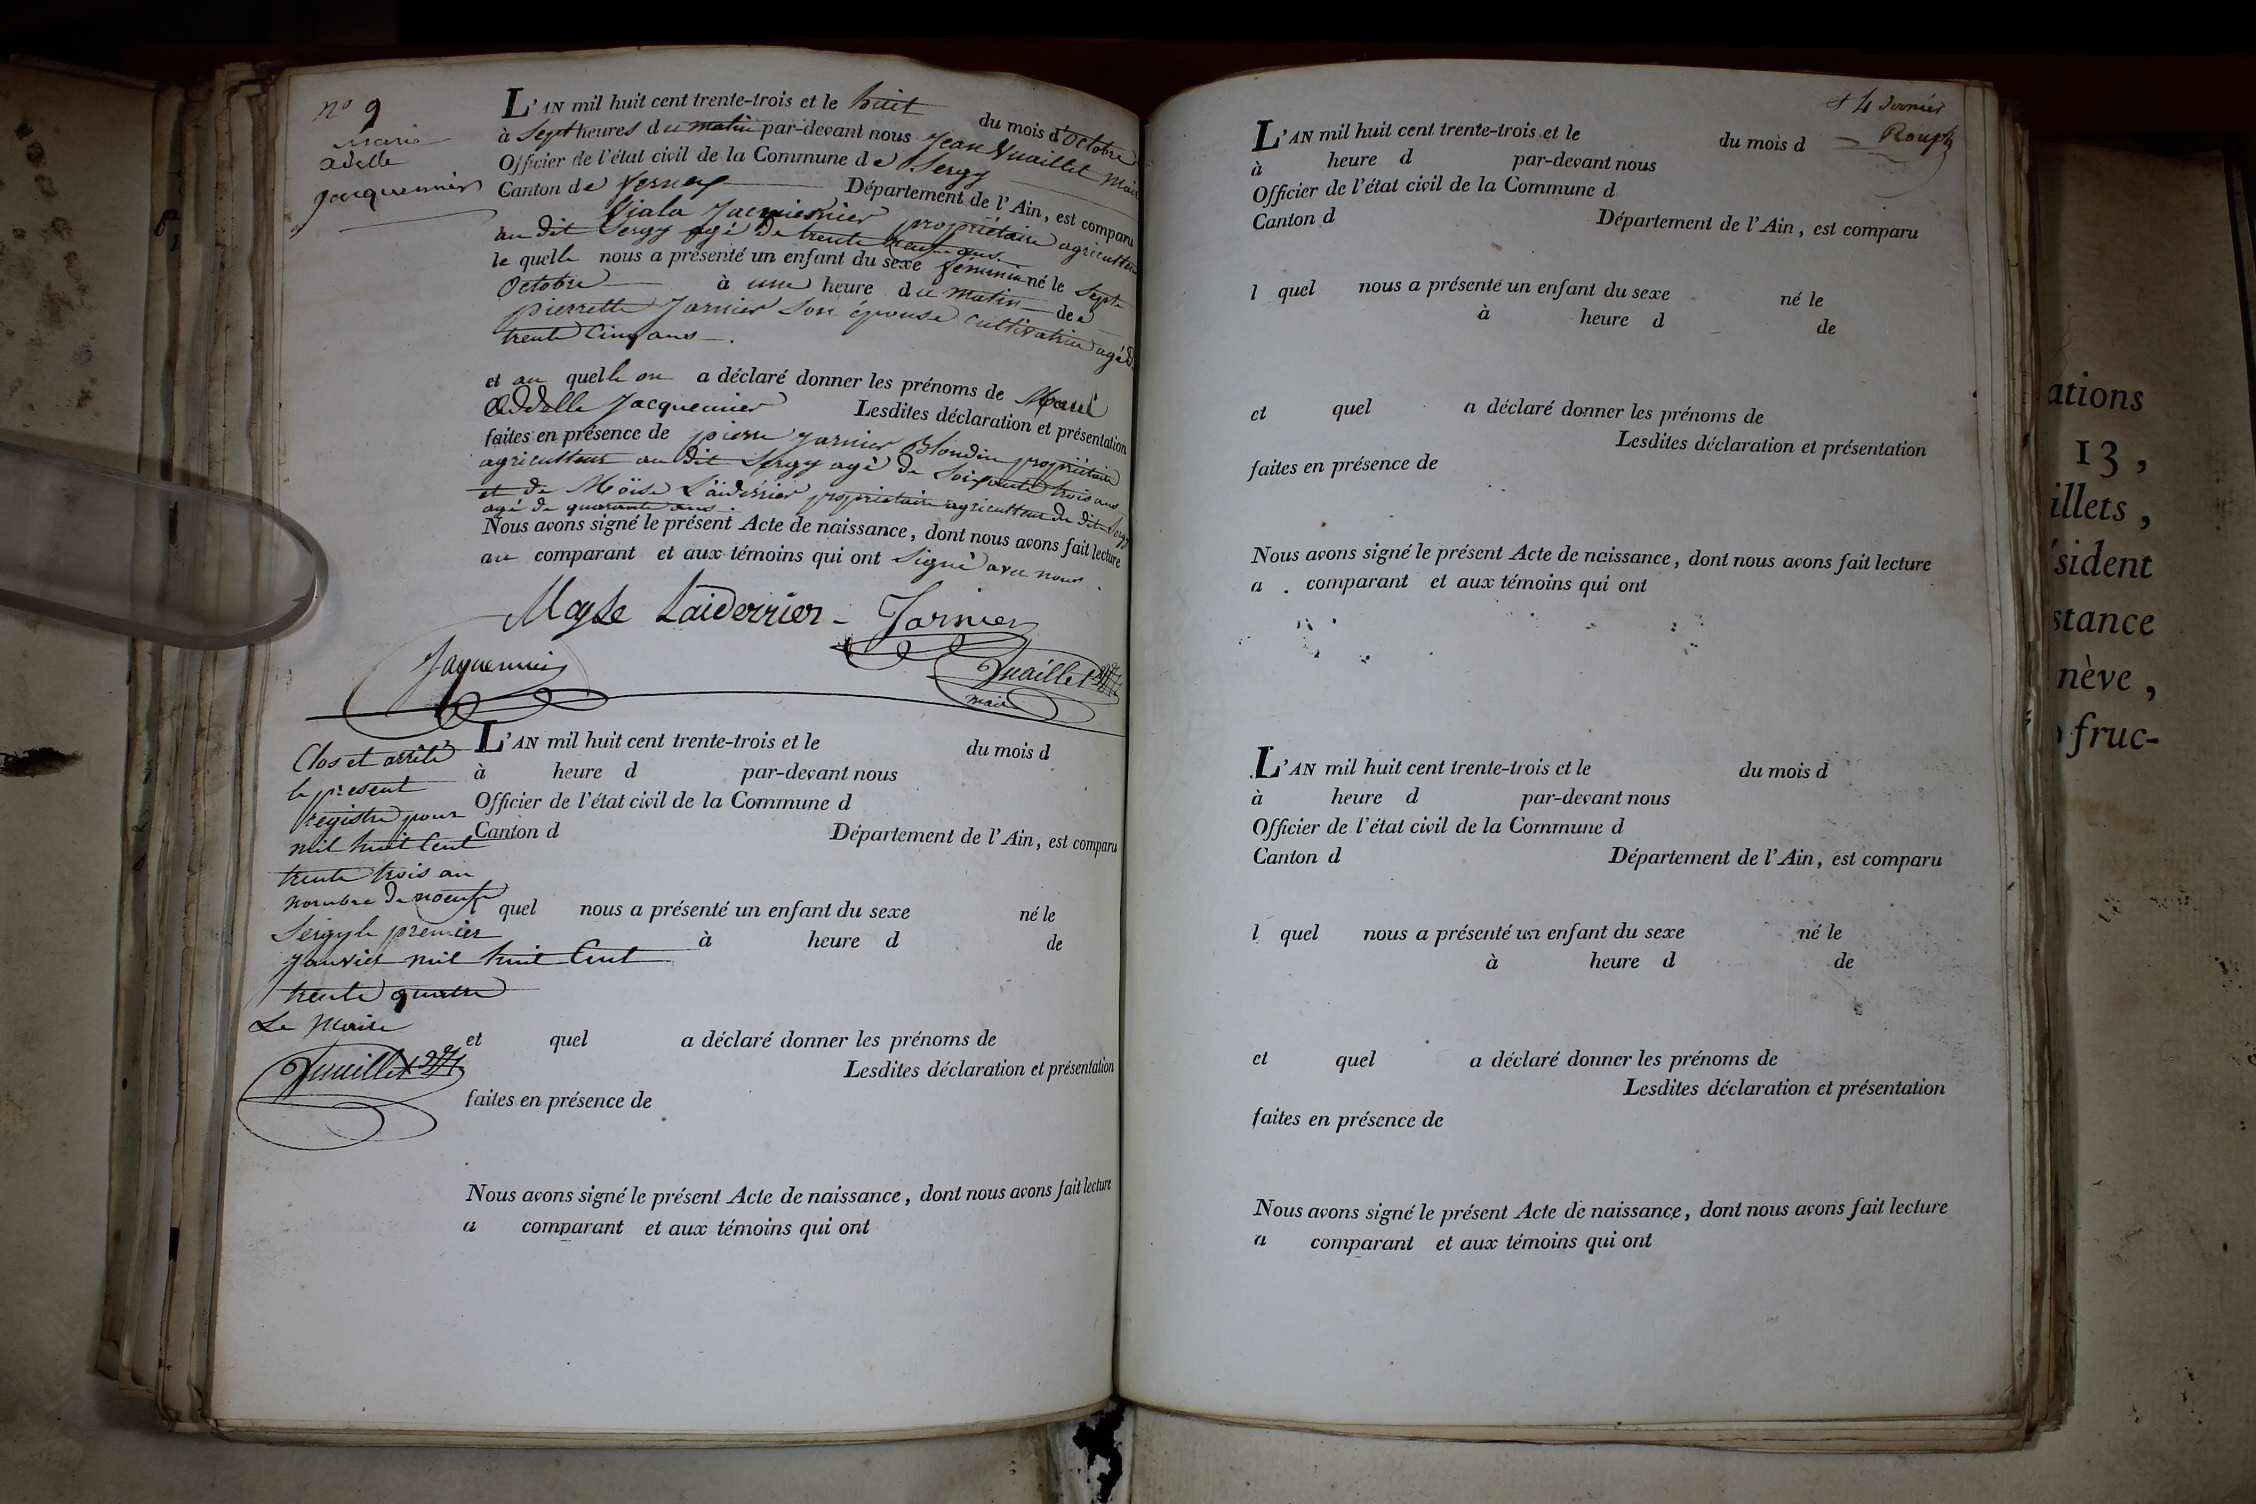 n° 9
Marie
adelle
Jacquemier
L'AN mil huit cent trente-trois et le huit du mois d'Octobre
à Sept heures du matin par-devant nous Jean Vuaillet Maire
Officier de l'état civil de la Commune de Sergy
Canton de Ferney Département de l'Ain, est comparu
Viala Jacquemier propriétaire agriculteur
au dit Sergy agé de trente neuf ans
le quelle nous a présenté un enfant du sexe féminin né le Sept
Octobre à une heure du matin de
pierrette Jarnier Son épouse cultivatrice agé de
trente Cinq ans.
et au quelle on a déclaré donner les prénoms de Marie
Addelle Jacquemier Lesdites déclaration et présentation
faites en présence de pierre Jarnier Blondin propriétaire
agriculteur au dit Sergy agé de Soixante trois ans
et de Moïse Laiderrier propriétaire agriculteur du dit Sergy
agé de quarante ans.
Nous avons signé le présent Acte de naissance, dont nous avons fait lecture
au comparant et aux témoins qui ont Signé avec nous.
Moyse Laiderrier - Jarnier
Jaquemier
Vuaillet
maire
Clos et arrêté
le present
registre pour
mil huit Cent
trente trois au
nombre de noeuf
Sergy le premier
Janvier mil huit Cent
trente quatre
Le Maire
Vuaillet
L'AN mil huit cent trente-trois et le du mois d
à heure d par-devant nous
Officier de l'état civil de la Commune d
Canton d Département de l'Ain, est comparu
l quel nous a présenté un enfant du sexe né le
à heure d de
et quel a déclaré donner les prénoms de
Lesdites déclaration et présentation
faites en présence de
Nous avons signé le présent Acte de naissance, dont nous avons fait lecture
a comparant et aux témoins qui ont
4 dernier
L'AN mil huit cent trente-trois et le du mois d
à heure d par-devant nous
Officier de l'état civil de la Commune d
Canton d Département de l'Ain, est comparu
l quel nous a présenté un enfant du sexe né le
à heure d de
et quel a déclaré donner les prénoms de
Lesdites déclaration et présentation
faites en présence de
Nous avons signé le présent Acte de naissance, dont nous avons fait lecture
a comparant et aux témoins qui ont
L'AN mil huit cent trente-trois et le du mois d
à heure d par-devant nous
Officier de l'état civil de la Commune d
Canton d Département de l'Ain, est comparu
l quel nous a présenté un enfant du sexe né le
à heure d de
et quel a déclaré donner les prénoms de
Lesdites déclaration et présentation
faites en présence de
Nous avons signé le présent Acte de naissance, dont nous avons fait lecture
a comparant et aux témoins qui ont
ations
13,
illets,
ésident
stance
nève,
fruc-